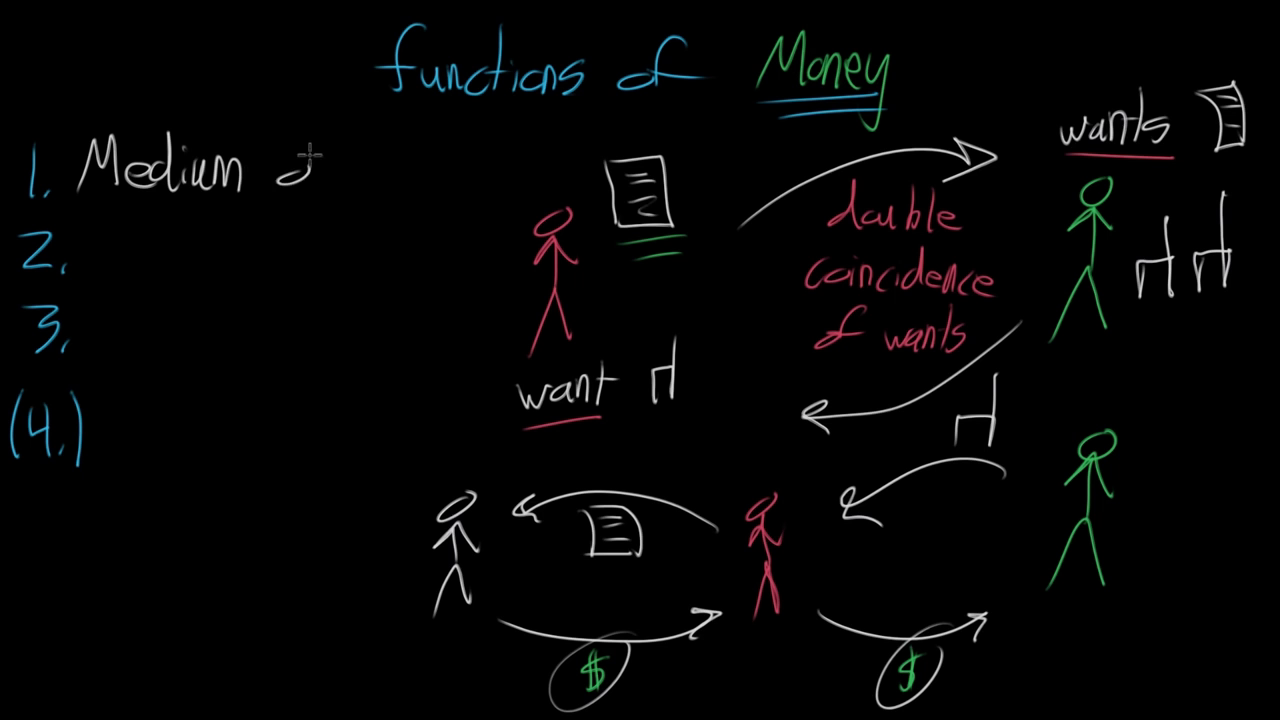 functions of Money
1. Medium o
2.
3.
(4.)
wants
double
coincidence
of wants
want
$
$